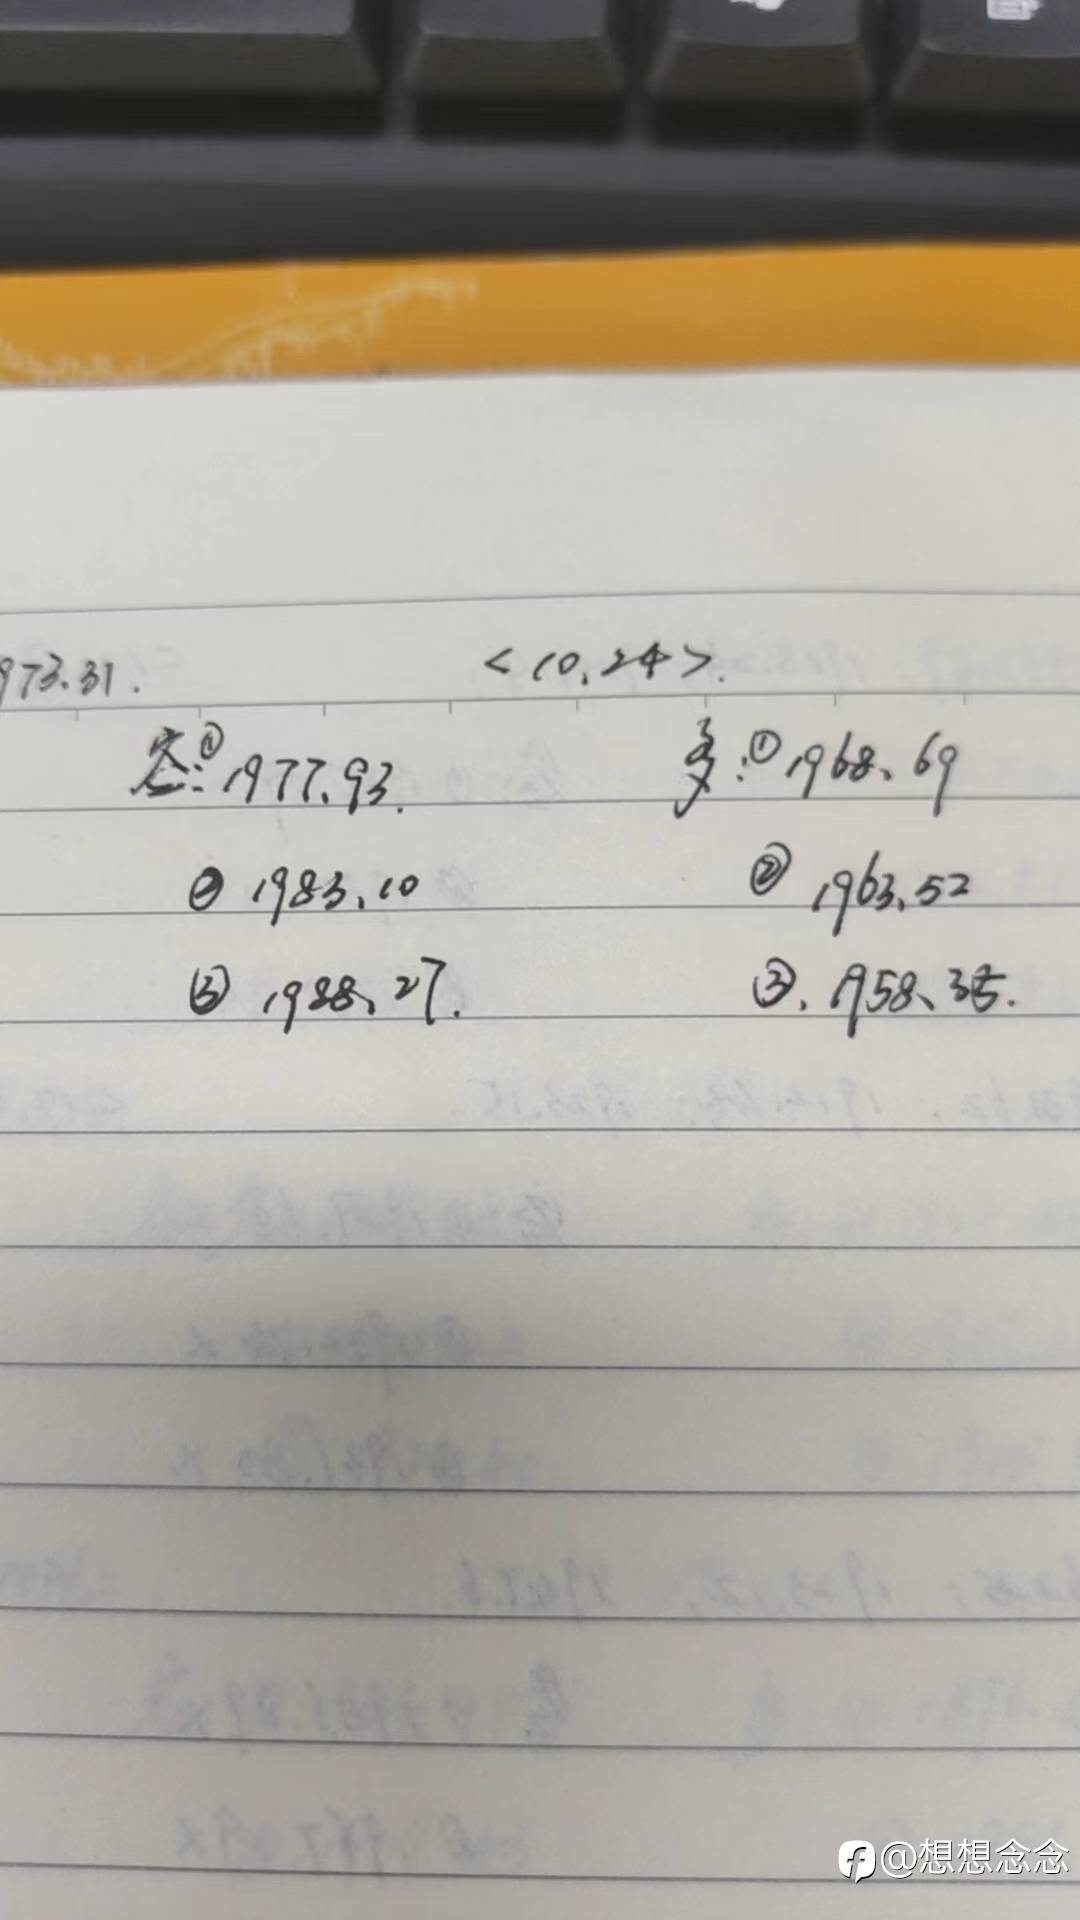 973.31. <10.24>.
空:① 1977.93. 多:① 1968.69
② 1983.10 ② 1963.52
③ 1988.27. ③. 1958.35.
@想想念念